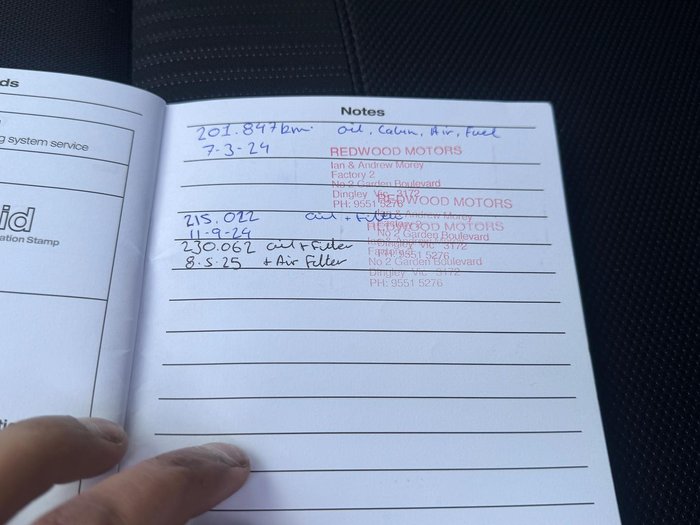 ds
g system service
id
ation Stamp
Notes
201.847km. oil, Cabin, Air, Fuel
7-3-24
REDWOOD MOTORS
Ian & Andrew Morey
Factory 2
No 2 Garden Boulevard
Dingley Vic 3172
PH: 9551 5276
REDWOOD MOTORS
215.022 oil + Filter
Andrew Morey
11-9-24
REDWOOD MOTORS
No 2 Garden Boulevard
230.062 oil + Filter
Dingley Vic 3172
PH: 9551 5276
8.5.25 + Air Filter
No 2 Garden Boulevard
Dingley Vic 3172
PH: 9551 5276